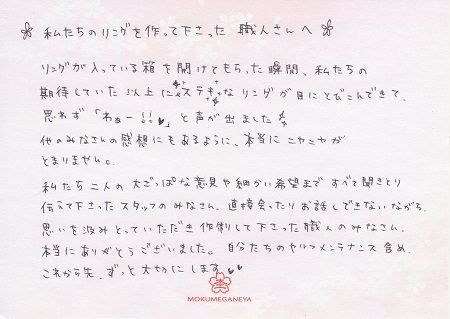 ❀ 私たちのリングを作って下さった 職人さんへ ❀
リングが入っている箱を開けてもらった瞬間、私たちの
期待していた以上にステキなリングが目にとびこんできて、
思わず「わぁー!!♥」と声が出ました
他のみなさんの感想にもあるように、本当にニヤニヤが
とまりません。
私たち二人の大ざっぱな意見や細かい希望まですべて聞きとり
伝えて下さったスタッフのみなさん、直接会ったりお話しできないながら、
思いを汲みとっていただき作制して下さった職人のみなさん、
本当にありがとうございました。自分たちのセルフメンテナンス含め、
これから先、ずっと大切にします♥♥
MOKUMEGANEYA